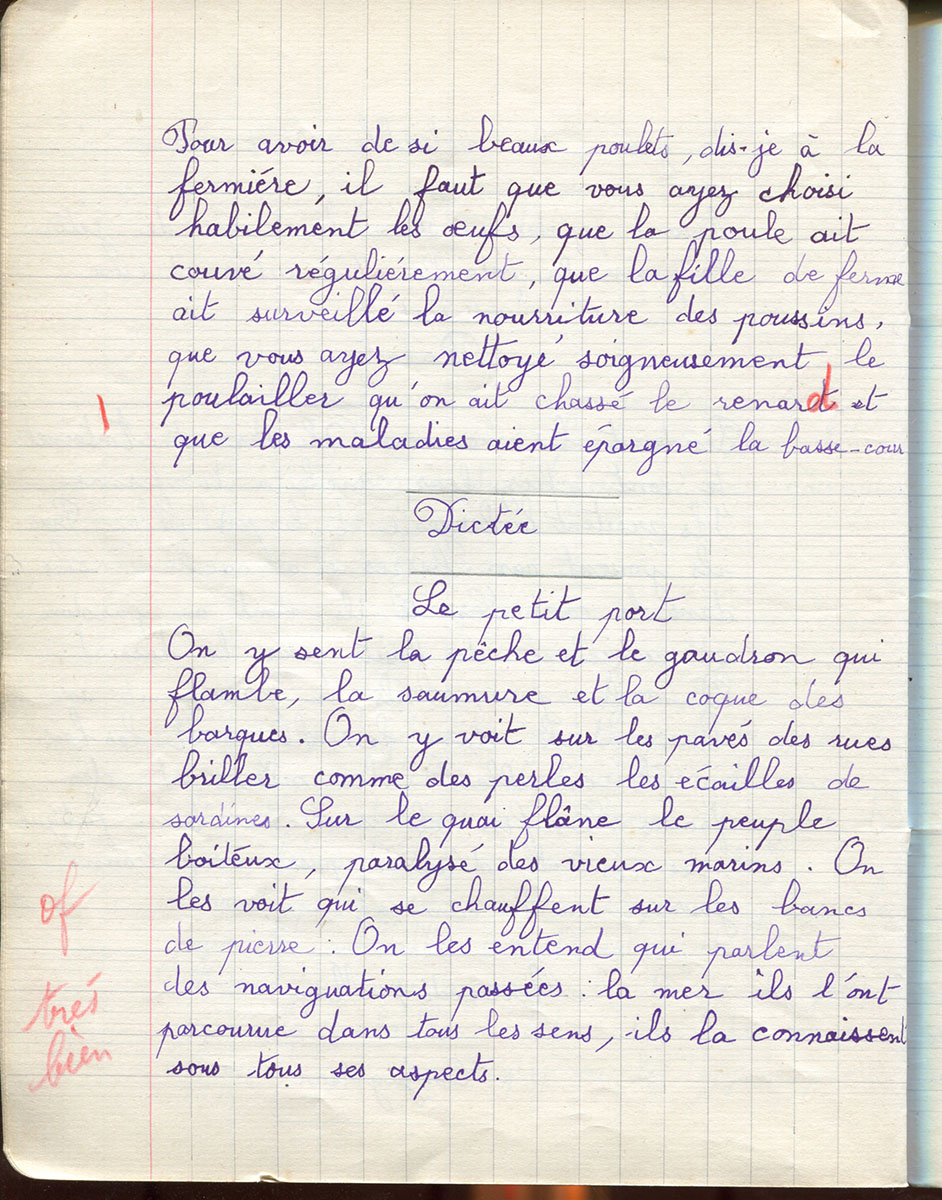 Pour avoir de si beaux poulets, dis-je à la
fermiére, il faut que vous ayez choisi
habilement les œufs, que la poule ait
couvé réguliérement, que la fille de ferme
ait surveillé la nourriture des poussins,
que vous ayez nettoyé soigneusement le
poulailler qu'on ait chassé le renard et
que les maladies aient épargné la basse-cour
Dictée
Le petit port
On y sent la pêche et le gaudron qui
flambe, la saumure et la coque des
barques. On y voit sur les pavés des rues
briller comme des perles les écailles de
sardines. Sur le quai flâne le peuple
boiteux, paralysé des vieux marins. On
les voit qui se chauffent sur les bancs
de pierre. On les entend qui parlent
des naviguations passées : la mer ils l'ont
parcourue dans tous les sens, ils la connaissent
sous tous ses aspects.
1
of
très
bien